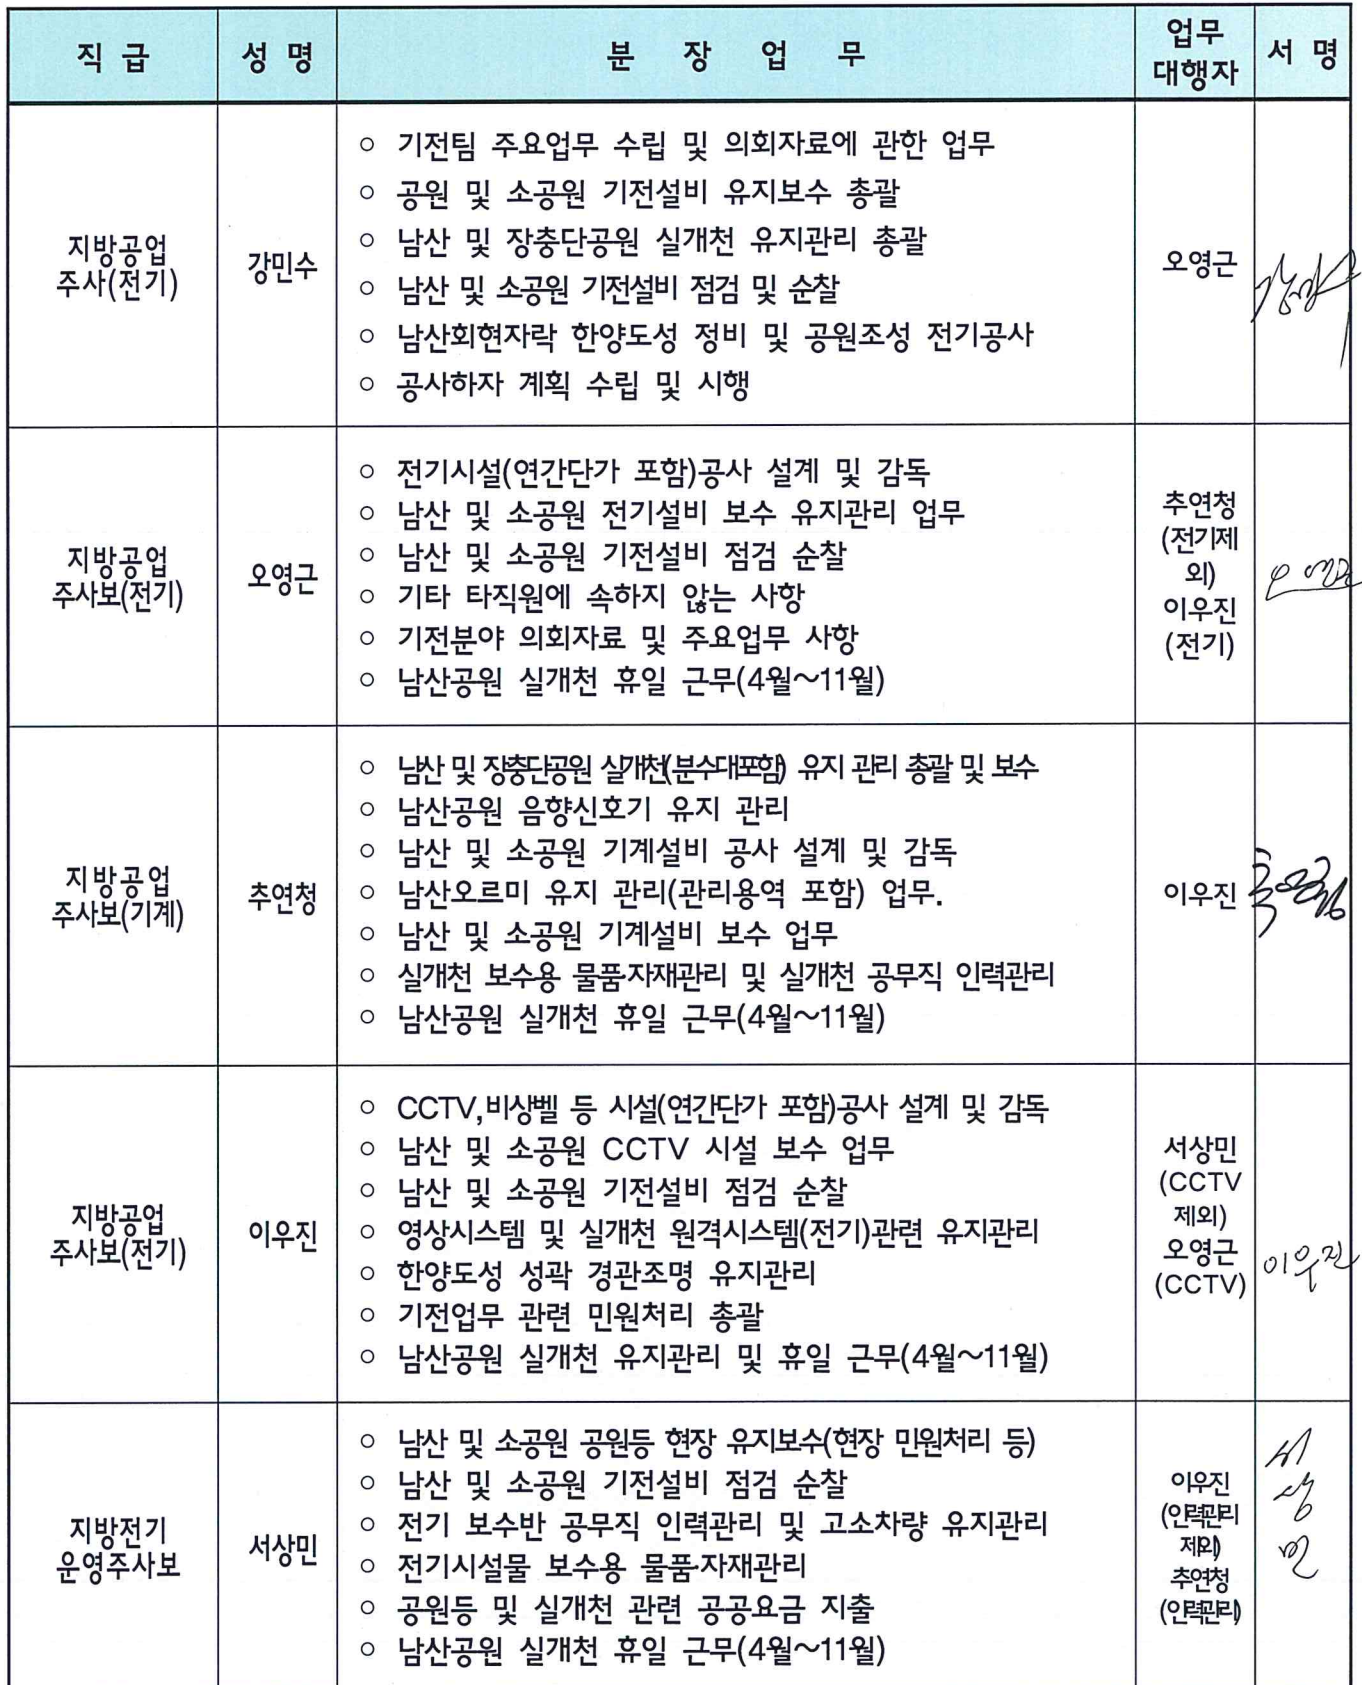 직 급
성 명
분 장 업 무
업무
대행자
서 명
지방공업
주사(전기)
강민수
○ 기전팀 주요업무 수립 및 의회자료에 관한 업무
○ 공원 및 소공원 기전설비 유지보수 총괄
○ 남산 및 장충단공원 실개천 유지관리 총괄
○ 남산 및 소공원 기전설비 점검 및 순찰
○ 남산회현자락 한양도성 정비 및 공원조성 전기공사
○ 공사하자 계획 수립 및 시행
오영근
지방공업
주사보(전기)
오영근
○ 전기시설(연간단가 포함)공사 설계 및 감독
○ 남산 및 소공원 전기설비 보수 유지관리 업무
○ 남산 및 소공원 기전설비 점검 순찰
○ 기타 타직원에 속하지 않는 사항
○ 기전분야 의회자료 및 주요업무 사항
○ 남산공원 실개천 휴일 근무(4월～11월)
추연청
(전기제
외)
이우진
(전기)
오영근
지방공업
주사보(기계)
추연청
○ 남산 및 장충단공원 실개천(분수대포함) 유지 관리 총괄 및 보수
○ 남산공원 음향신호기 유지 관리
○ 남산 및 소공원 기계설비 공사 설계 및 감독
○ 남산오르미 유지 관리(관리용역 포함) 업무.
○ 남산 및 소공원 기계설비 보수 업무
○ 실개천 보수용 물품·자재관리 및 실개천 공무직 인력관리
○ 남산공원 실개천 휴일 근무(4월～11월)
이우진
지방공업
주사보(전기)
이우진
○ CCTV,비상벨 등 시설(연간단가 포함)공사 설계 및 감독
○ 남산 및 소공원 CCTV 시설 보수 업무
○ 남산 및 소공원 기전설비 점검 순찰
○ 영상시스템 및 실개천 원격시스템(전기)관련 유지관리
○ 한양도성 성곽 경관조명 유지관리
○ 기전업무 관련 민원처리 총괄
○ 남산공원 실개천 유지관리 및 휴일 근무(4월～11월)
서상민
(CCTV
제외)
오영근
(CCTV)
이우진
지방전기
운영주사보
서상민
○ 남산 및 소공원 공원등 현장 유지보수(현장 민원처리 등)
○ 남산 및 소공원 기전설비 점검 순찰
○ 전기 보수반 공무직 인력관리 및 고소차량 유지관리
○ 전기시설물 보수용 물품·자재관리
○ 공원등 및 실개천 관련 공공요금 지출
○ 남산공원 실개천 휴일 근무(4월～11월)
이우진
(인력관리
제외)
추연청
(인력관리)
서
상
민